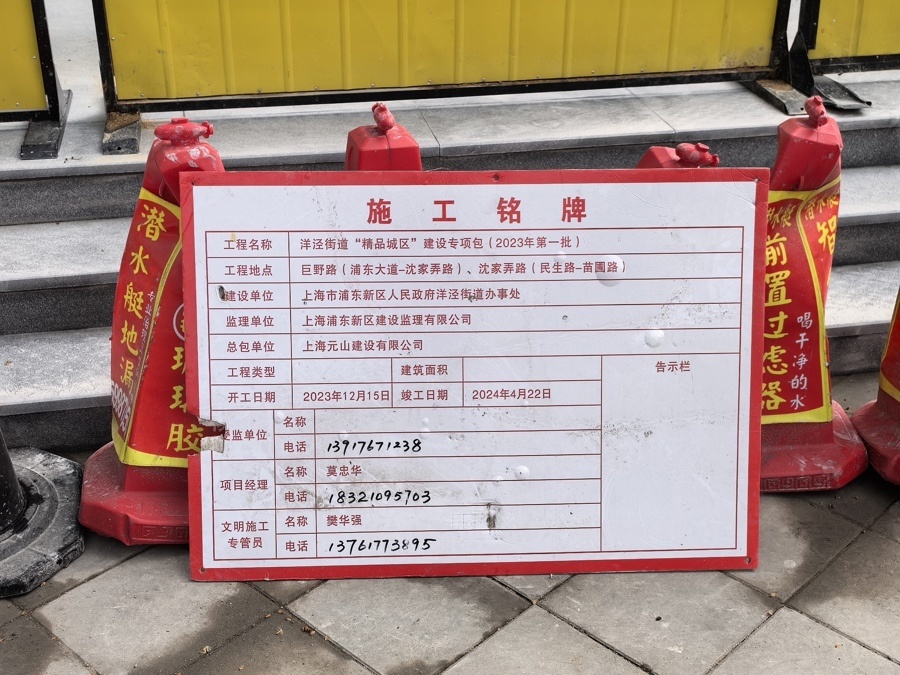 施工铭牌
工程名称 洋泾街道“精品城区”建设专项包（2023年第一批）
工程地点 巨野路（浦东大道-沈家弄路）、沈家弄路（民生路-苗圃路）
建设单位 上海市浦东新区人民政府洋泾街道办事处
监理单位 上海浦东新区建设监理有限公司
总包单位 上海元山建设有限公司
工程类型 建筑面积
告示栏
开工日期 2023年12月15日 竣工日期 2024年4月22日
受监单位 名称
电话 13917671238
项目经理 名称 莫忠华
电话 18321095703
文明施工专管员 名称 樊华强
电话 13761773895
潜水艇地漏
胶
前置过滤器
喝干净的水